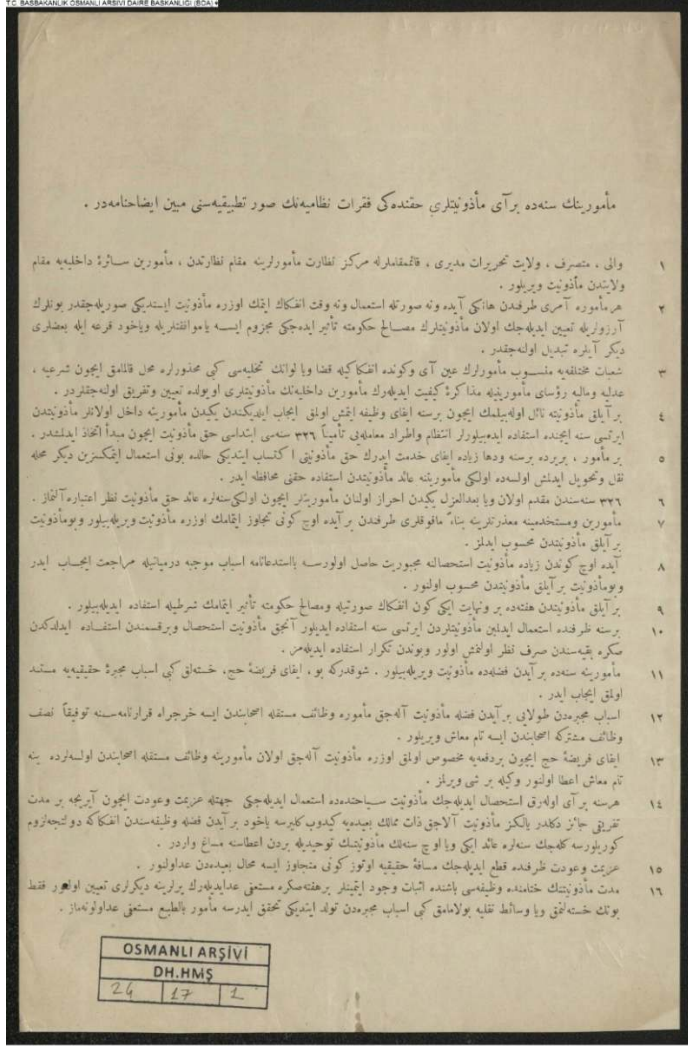 T.C. BAŞBAKANLIK OSMANLI ARŞİVİ DAİRE BAŞKANLIĞI (BOA)
مأمورينك سنه‌ده بر آى مأذونيتلرى حقنده‌كى فقرات نظاميه‌نك صور تطبيقيه‌سنى مبين ايضاحنامه‌در .
١ والى ، متصرف ، ولايت تحريرات مديرى ، قائممقاملرله مركز نظارت مأمورلرينه مقام نظارتدن ، مأمورين سائرهٔ داخليه‌يه مقام
ولايتدن مأذونيت ويريلور .
٢ هر مأموره آمرى طرفندن هانكى آيده ونه صورتله استعمال ونه وقت انفكاك ايتمك اوزره مأذونيت ايستديكى صوريله‌جقدر بونلرك
آرزولريله تعيين ايديله‌جك اولان مأذونيتلرك مصالح حكومته تأثير ايده‌جكى مجزوم ايسه ياموافقتلريله وياخود قرعه ايله بعضلرى
ديكر آيلره تبديل اولنه‌جقدر .
٣ شعبات مختلفه‌يه منسوب مأمورلرك عين آى وكونده انفكاكيله قضا ويا لوانك تخليه‌سى كبى محذورلره محل قالمامق ايچون شرعيه ،
عدليه وماليه رؤساى مأموريتيله مذاكرهٔ كيفيت ايديله‌رك مأمورين داخليه‌نك مأذونيتلرى او يولده تعيين وتفريق اولنه‌جقلردر .
٤ بر آيلق مأذونيته نائل اوله‌بيلمك ايچون برسنه ايفاى وظيفه ايتمش اولمق ايجاب ايده‌جكندن يكيدن مأموريته داخل اولانلر مأذونيتدن
ايرتسى سنه ايچنده استفاده ايده‌بيلورلر انتظام واطراد معامله‌يى تأميناً ٣٢٦ سنه‌سى ابتداسى حق مأذونيت ايچون مبدأ اتخاذ ايدلمشدر .
٥ بر مأمور ، بر يرده برسنه ودها زياده ايفاى خدمت ايدرك حق مأذونيتى اكتساب ايتديكى حالده بونى استعمال ايتمكسزين ديكر محله
نقل وتحويل ايدلمش اولسه‌ده اولكى مأموريتنه عائد مأذونيتدن استفاده حقنى محافظه ايدر .
٦ ٣٢٦ سنه‌سندن مقدم اولان ويا بعدالعزل يكيدن احراز اولنان مأموريتلر ايچون اولكى سنه‌لره عائد حق مأذونيت نظر اعتباره آلنماز .
٧ مأمورين ومستخدمينه معذرتلرينه بناءً مافوقلرى طرفندن بر آيده اوچ كونى تجاوز ايتمامك اوزره مأذونيت ويريله‌بيلور وبومأذونيت
بر آيلق مأذونيتدن محسوب ايدلمز .
٨ آيده اوچ كوندن زياده مأذونيت استحصالنه مجبوريت حاصل اولورسه بااستدعانامه اسباب موجبه درميانيله مراجعت ايجاب ايدر
وبومأذونيت بر آيلق مأذونيتدن محسوب اولنور .
٩ بر آيلق مأذونيتدن هفته‌ده بر ونهايت ايكى كون انفكاك صورتيله ومصالح حكومته تأثير ايتمامك شرطيله استفاده ايديله‌بيلور .
١٠ برسنه ظرفنده استعمال ايدلمين مأذونيتلردن ايرتسى سنه استفاده ايديلور آنجق مأذونيت استحصال وبرقسمندن استفاده ايدلدكدن
صكره بقيه‌سندن صرف نظر اولنمش اولور وبوندن تكرار استفاده ايديله‌مز .
١١ مأمورينه سنه‌ده بر آيدن فضله‌ده مأذونيت ويريله‌بيلور . شوقدركه بو ، ايفاى فريضهٔ حج ، خسته‌لق كبى اسباب مجبرهٔ حقيقيه‌يه مستند
اولمق ايجاب ايدر .
١٢ اسباب مجبره‌دن طولايى بر آيدن فضله مأذونيت آله‌جق مأموره وظائف مستقله اصحابندن ايسه خرجراه قرارنامه‌سنه توفيقاً نصف
وظائف مشتركه اصحابندن ايسه تام معاش ويريلور .
١٣ ايفاى فريضهٔ حج ايچون بردفعه‌يه مخصوص اولمق اوزره مأذونيت آله‌جق اولان مأمورينه وظائف مستقله اصحابندن اولسه‌لرده ينه
تام معاش اعطا اولنور وكيله بر شى ويرلمز .
١٤ هرسنه بر آى اوله‌رق استحصال ايديله‌جك مأذونيت سياحتده‌ده استعمال ايديله‌جكى جهتله عزيمت وعودت ايچون آيريجه بر مدت
تفريقى جائز دكلدر يالكز مأذونيت آلاجق ذات ممالك بعيده‌يه كيدوب كليرسه ياخود بر آيدن فضله وظيفه‌سندن انفكاكه دولتجه‌لزوم
كوريلورسه كله‌جك سنه‌لره عائد ايكى ويا اوچ سنه‌لك مأذونيتنك توحيديله بردن اعطاسنه مساغ واردر .
١٥ عزيمت وعودت ظرفنده قطع ايديله‌جك مسافهٔ حقيقيه اوتوز كونى متجاوز ايسه محال بعيده‌دن عداولنور .
١٦ مدت مأذونيتنك ختامنده وظيفه‌سى باشنده اثبات وجود ايتمينلر برهفته‌صكره مستعفى عدايديله‌رك يرلرينه ديكرلرى تعيين اولنور فقط
بونك خسته‌لنمق ويا وسائط نقليه بولامامق كبى اسباب مجبره‌دن تولد ايتديكى تحقق ايدرسه مأمور بالطبع مستعفى عداولونه‌ماز .
OSMANLI ARŞİVİ
DH.HMŞ
24 17 1